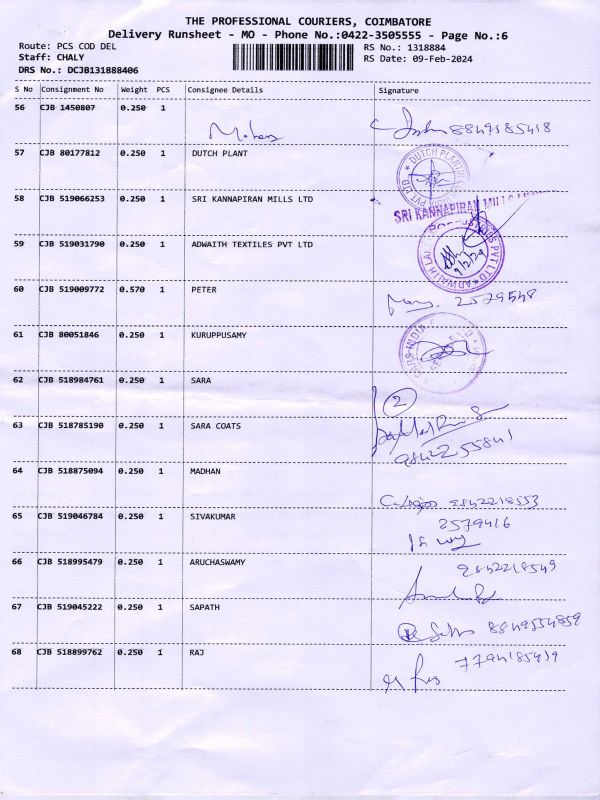 THE PROFESSIONAL COURIERS, COIMBATORE
Delivery Runsheet - MO - Phone No.:0422-3505555 - Page No.:6
Route: PCS COD DEL
RS No.: 1318884
Staff: CHALY
RS Date: 09-Feb-2024
DRS No.: DCJB131888406
S No Consignment No Weight PCS Consignee Details Signature
56 CJB 1450807 0.250 1
8849185418
57 CJB 80177812 0.250 1 DUTCH PLANT
58 CJB 519066253 0.250 1 SRI KANNAPIRAN MILLS LTD
SRI KANNAPIRAN MILLS
59 CJB 519031790 0.250 1 ADWAITH TEXTILES PVT LTD
9/2/24
60 CJB 519009772 0.570 1 PETER
2579548
61 CJB 80051846 0.250 1 KURUPPUSAMY
62 CJB 518984761 0.250 1 SARA
2
63 CJB 518785190 0.250 1 SARA COATS
9842255841
64 CJB 518875094 0.250 1 MADHAN
9842218553
65 CJB 519046784 0.250 1 SIVAKUMAR
2579416
66 CJB 518995479 0.250 1 ARUCHASWAMY
9842218549
67 CJB 519045222 0.250 1 SAPATH
8849554859
68 CJB 518899762 0.250 1 RAJ
7794185419